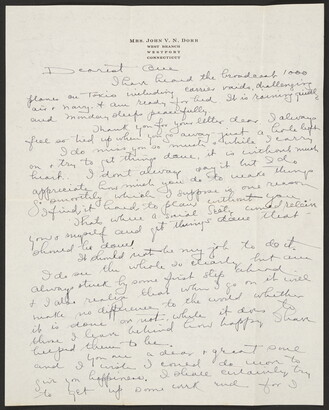 MRS. JOHN V. N. DORR
WEST BRANCH
WESTPORT
CONNECTICUT
Dearest Bill
I have heard the broadcast 1000
planes on Tokio including carrier raids, challenging
air & navy. & am ready for bed. It is raining
and Monday sleeps peacefully.
Thank you for your letter dear I always
feel so tied up when you go away just a whole life
I do miss you so much & while I carry
on & try to get things done, it is without much
heart. I don't always say it but I do
appreciate how much you do to make things
smoothly which I suppose is one reason
I find it hard to plan without you.
That's where a social Secty could relieve
you & myself and get things done that
should be done.
It should not be my job to do it.
I do see the whole so clearly but am
always stuck by some first step behind
& I also realize that when I go on it will
make no difference to the world whether
it is done or not, while it does to
those I leave behind how happy I have
helped them to be.
You are a dear & great soul
and I wish I could do more to
give you happiness. I shall certainly try
to get up some work and for I